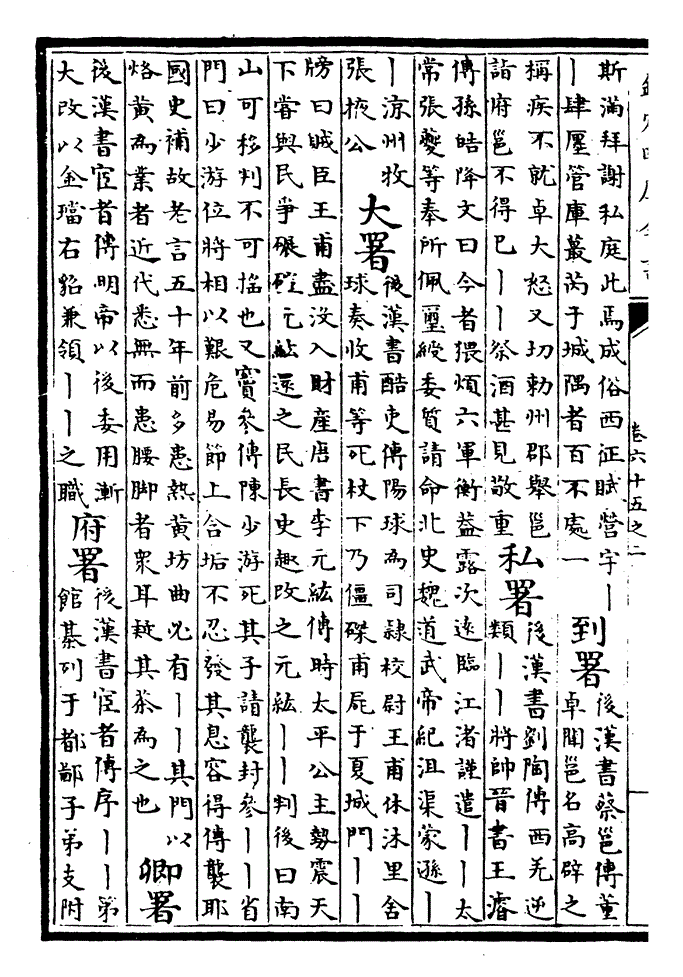 欽定四庫全書
卷六十五之二
斯滿拜謝私庭此焉成俗西征賦營宇丨
丨肆廛管庫蕞芮于城隅者百不處一
到署
後漢書蔡邕傳董
卓聞邕名高辟之
稱疾不就卓大怒又切勑州郡舉邕
詣府邕不得已丨丨祭酒甚見敬重
私署
後漢書劉陶傳西羌逆
類丨丨將帥晉書王濬
傳孫皓降文曰今者猥煩六軍衡葢露次遠臨江渚謹遣丨丨太
常張夔等奉所佩璽綬委質請命北史魏道武帝紀沮渠蒙遜丨
丨涼州牧
張掖公
大署
後漢書酷吏傳陽球為司隷校尉王甫休沐里舍
球奏收甫等死杖下乃僵磔甫屍于夏城門丨丨
牓曰賊臣王甫盡没入財産唐書李元紘傳時太平公主勢震天
下嘗與民爭碾磑元紘還之民長史趣改之元紘丨丨判後曰南
山可移判不可揺也又竇參傳陳少游死其子請襲封參丨丨省
門曰少游位將相以艱危易節上含垢不忍發其息容得傳襲耶
國史補故老言五十年前多患熱黄坊曲必有丨丨其門以
烙黄為業者近代悉無而患腰脚者衆耳疑其茶為之也
卿署
後漢書宦者傳明帝以後委用漸
大改以金璫右貂兼領丨丨之職
府署
後漢書宦者傳序丨丨第
館棊列于都鄙子弟支附